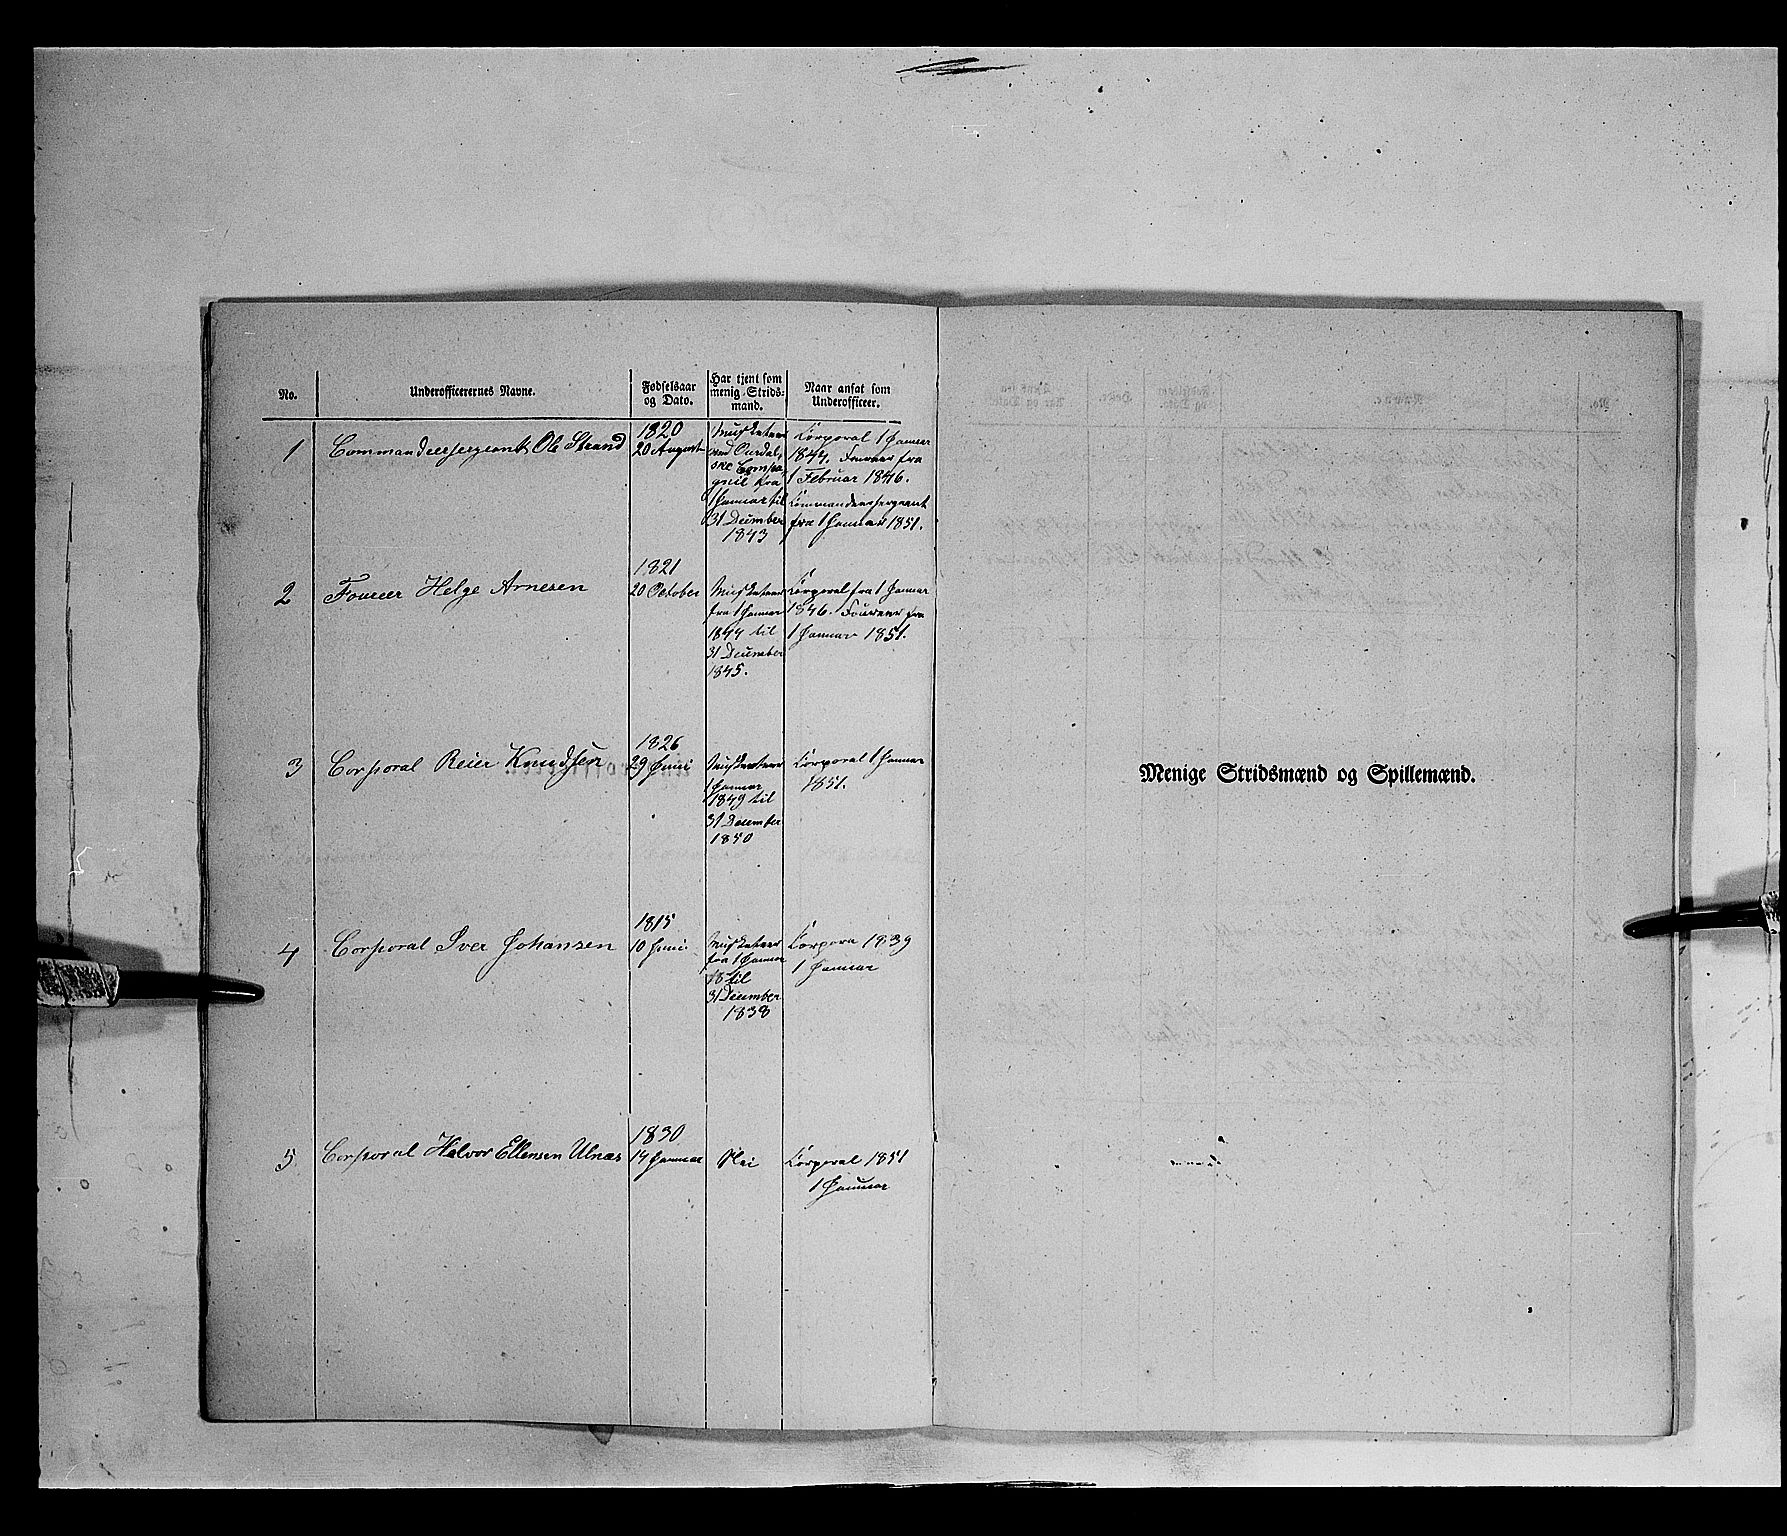 No.
Underofficerernes Navne.
Fødselsaar
og Dato.
Har tjent som
menig Strids-
mand.
Naar ansat som
Underofficeer.
1
Commandeersergeant Ole Strand
1820
20 August
Musketeer
ved Ourdal,
ske Compa
gnie fra
1 Januar til
31 December
1843
Corporal 1 Januar
1844. Foureer fra
1 Februar 1846.
Commandeersergeant
fra 1 Januar 1851.
2
Foureer Helge Arnesen
1821
20 October
Musketeer
fra 1 Januar
1844 til
31 December
1845.
Corporal fra 1 Januar
1846. Foureer fra
1 Januar 1851.
3
Corporal Reier Knudsen
1826
29 Juni
Musketeer
1 Januar
1849 til
31 December
1850
Corporal 1 Januar
1851.
4
Corporal Iver Johansen
1815
10 Juni
Musketeer
fra 1 Januar
18 til
31 December
1838
Corpora 1839
1 Januar
5
Corporal Halvor Ellensen Ulnæs
1830
14 Januar
Nei
Corporal 1851
1 Januar
Menige Stridsmænd og Spillemænd.